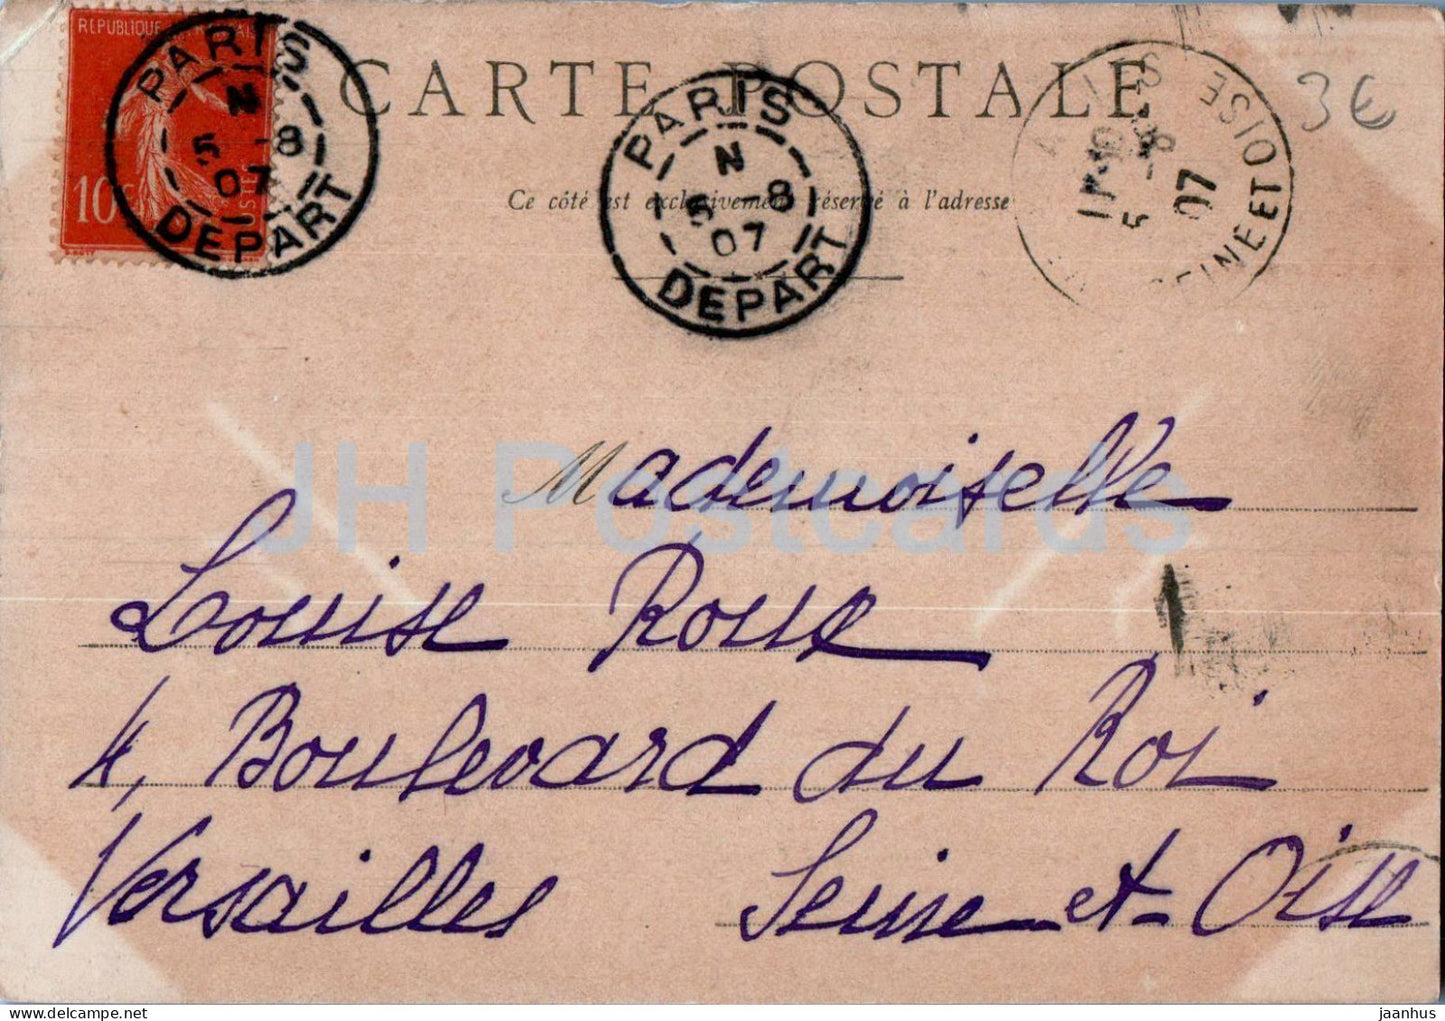 REPUBLIQUE FRANÇAISE
10c
POSTES
PARIS
N
5 -8
07
DEPART
CARTE POSTALE
PARIS
N
5 -8
07
DEPART
SEINE ET OISE
5 -8
07
3€
Ce côté est exclusivement réservé à l'adresse
JH Postcards
Mademoiselle
Louise Roux
4, Boulevard du Roi
Versailles Seine-et-Oise
delcampe.net
jaanhus